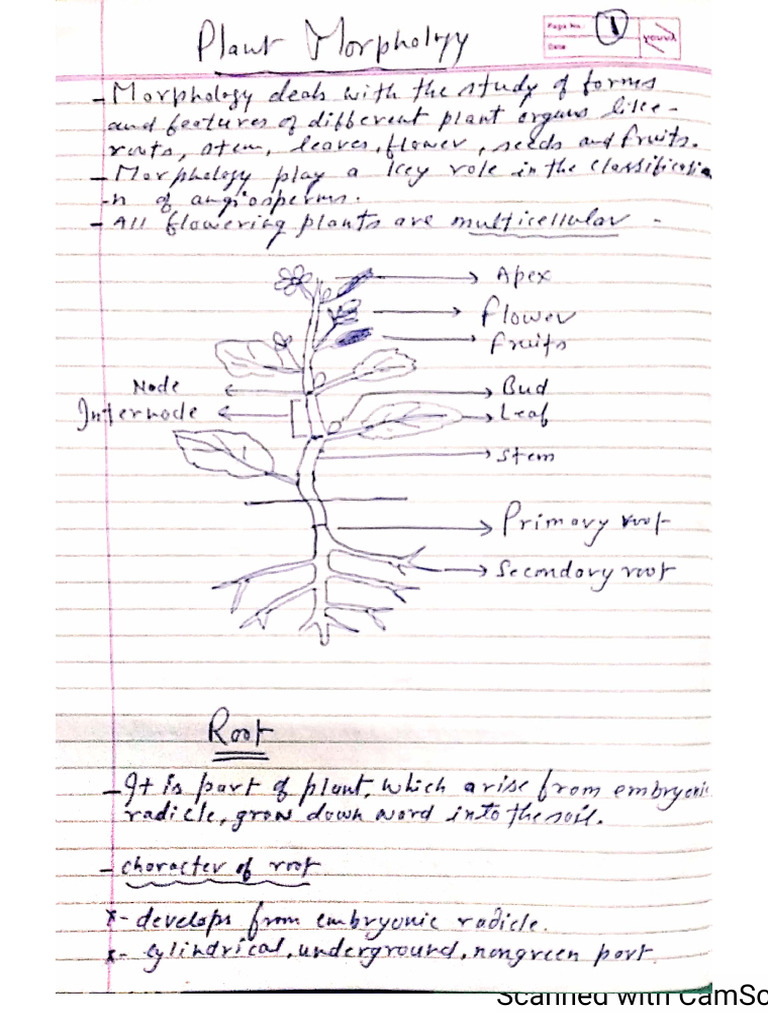 Plant Morphology
Page No. 1
Date
youva
- Morphology deals with the study of forms
and features of different plant organs like -
roots, stem, leaves, flower, seeds and fruits.
- Morphology play a key role in the classificatio
-n of angiosperms.
- All flowering plants are multicellular -
Apex
flower
fruits
Node
Bud
Internode
Leaf
Stem
Primary root
Secondary root
Root
- It is part of plant, which arise from embryonic
radicle, grow down word into the soil.
- character of root
*- develops from embryonic radicle.
*- cylindrical, underground, nongreen part.
Scanned with CamSc